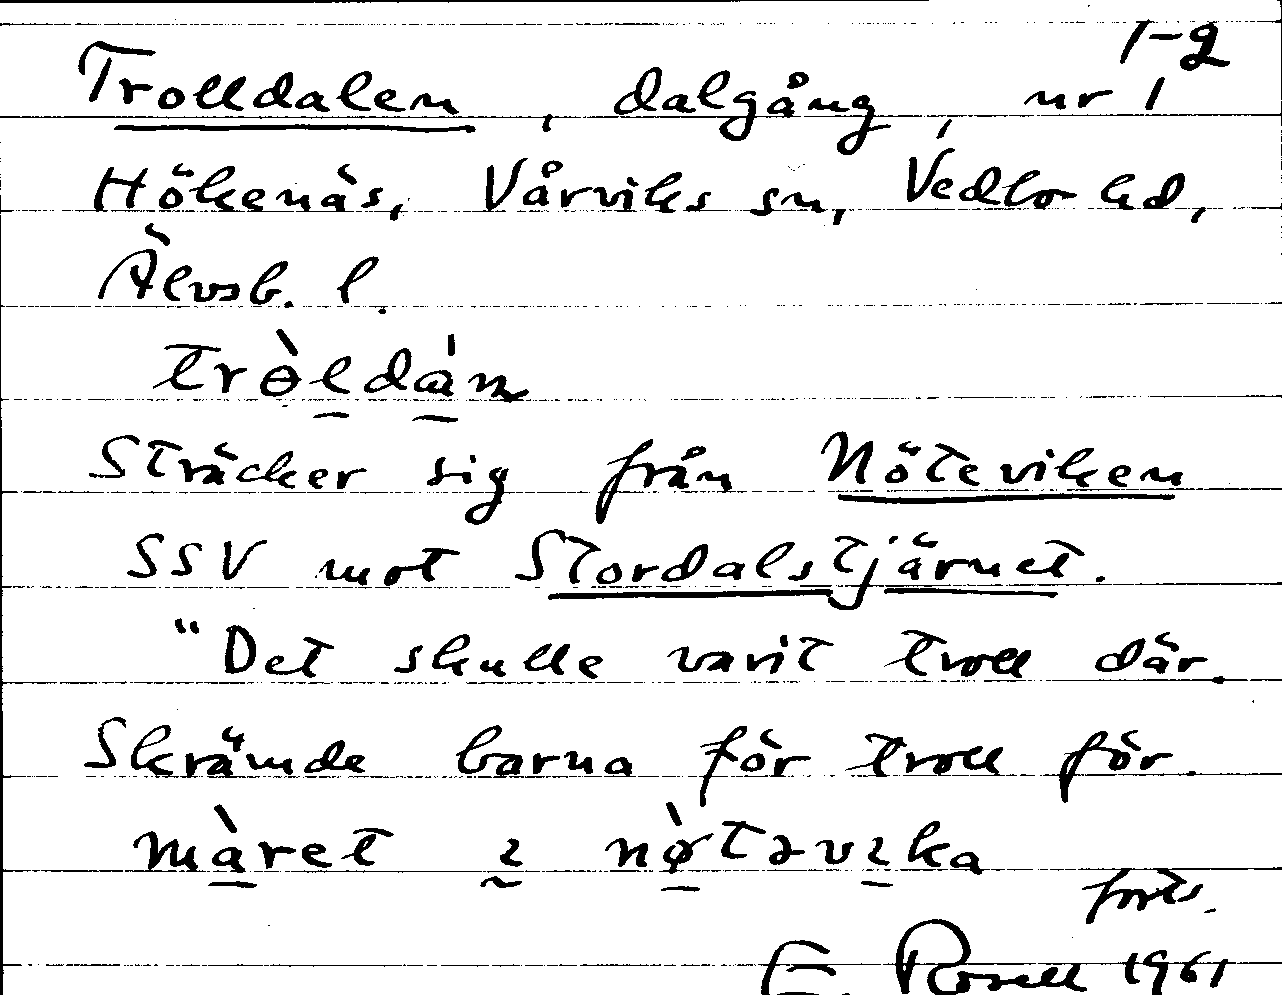 1-2
Trolldalen, dalgång, nr 1
Hökenäs, Vårviks sn, Vedbo hd,
Älvsb. l.
Sträcker sig från Nöteviken
SSV mot Stordalstjärnet.
"Det skulle varit troll där.
Skrämde barna för troll för.
màret
forts.
E. Rosell 1961